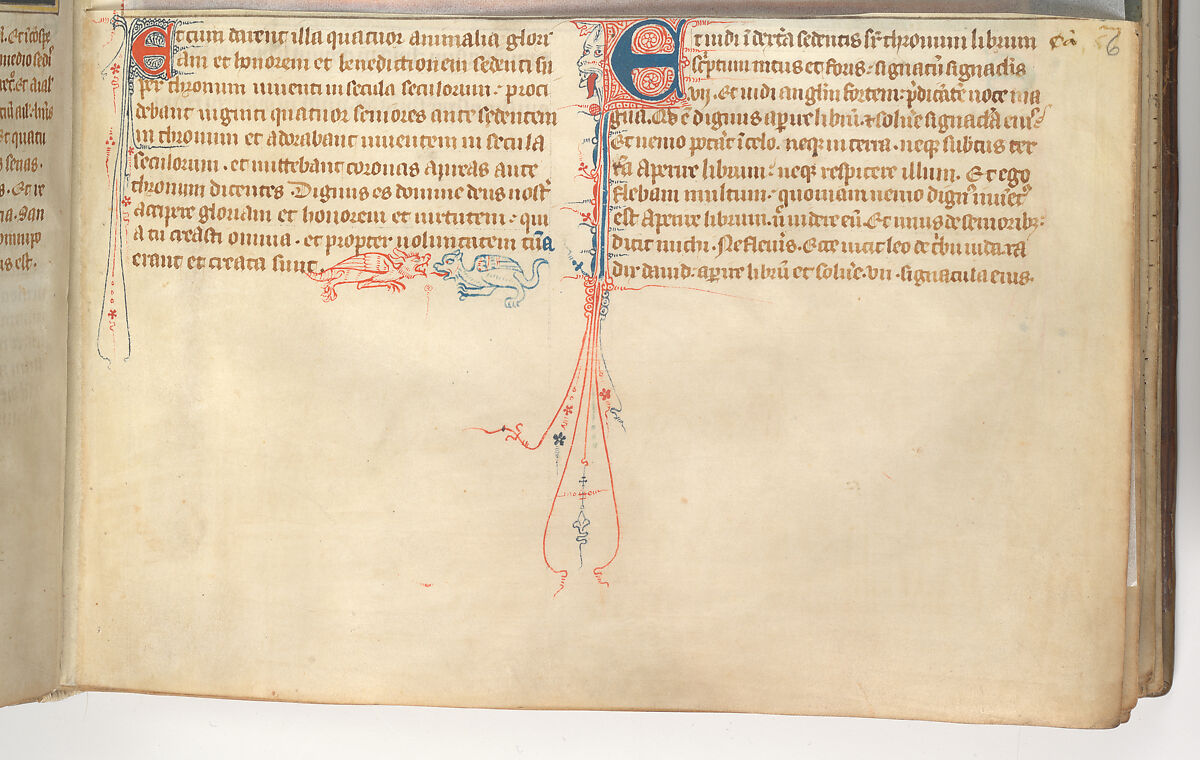 medio sedi
Et cum darent illa quatuor animalia glori
am et honorem et benedictionem sedenti su
per thronum uiuenti in secula seculorum · proci
debant uiginti quatuor seniores ante sedentem
in thronum et adorabant uiuentem in secula
seculorum · et mittebant coronas aureas ante
thronum dicentes Dignus es domine deus nost̄
accipere gloriam et honorem et uirtutem · qui
a tu creasti omnia · et propter uoluntatem tuā
erant et creata sunt
Et uidi ī dext̄a sedentis sr̄ thronum librum
sc̄ptum intus et foris · signatū signac̄lis
.vij. Et uidi angl̄m fortem · p̄dicātē uoce ma
gna. Qis ē dignus aꝑire librū ⁊ solu̓e signac̄la eius
Et nemo pot̓at ī celo. neqꝫ in terra · neqꝫ subtus ter
rā aperire librum · neqꝫ respicere illum. Et ego
flebam multum · quoniam nemo dign᾽ inuēt᾽
est aperire librum. n̄ uidere eū. Et unus de seniorib:
dicit michi. Ne fleueris. Ecce uicit leo de tribu iuda. ra
dix dauid · aꝑire librū et solu̓e .vii. signacula eius.